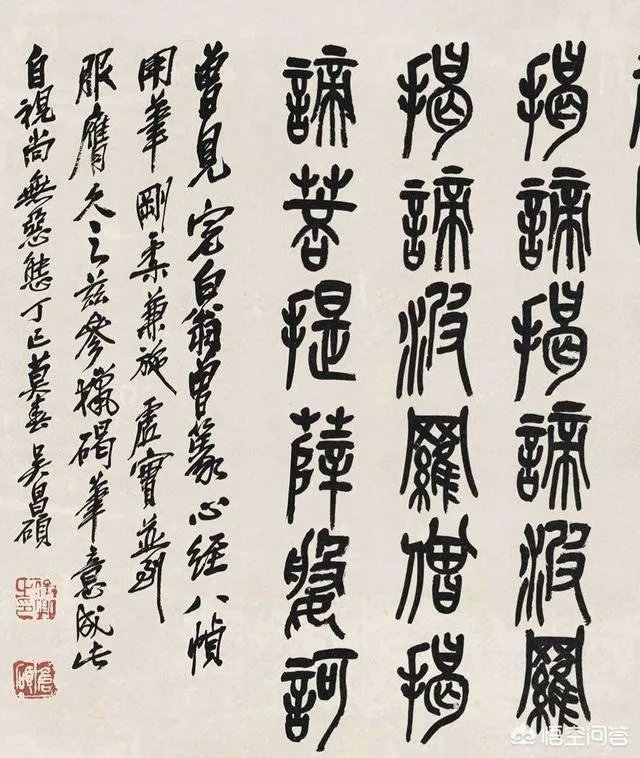 揭諦揭諦波羅
揭諦波羅僧揭
諦菩提薩婆訶
曾見完白翁曾篆心經八幀
用筆剛柔兼施虛實並到
服膺久之茲參獵碣筆意成此
自視尚無惡態丁巳莫春吳昌碩
悟空问答